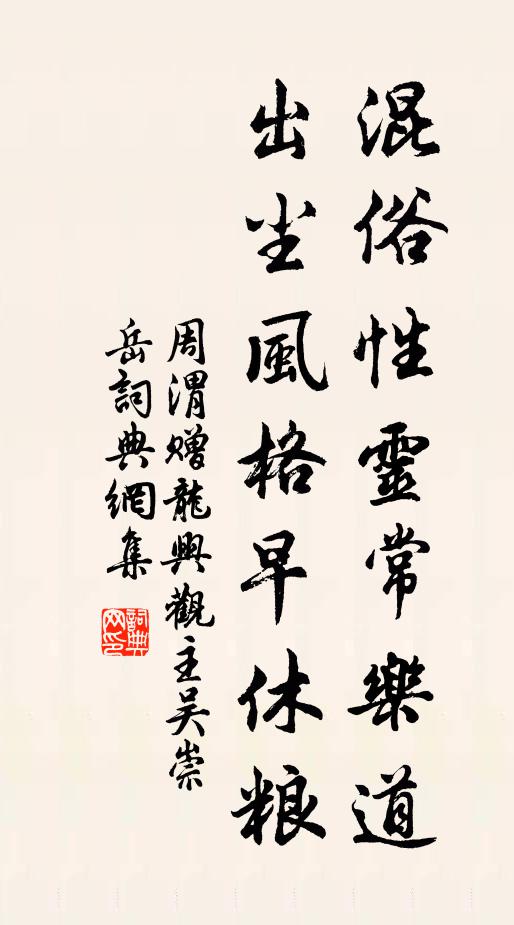 混俗性靈常樂道
出尘風格早休粮
周渭贈龍興觀主吴崇
岳詞典網集
詞典网印